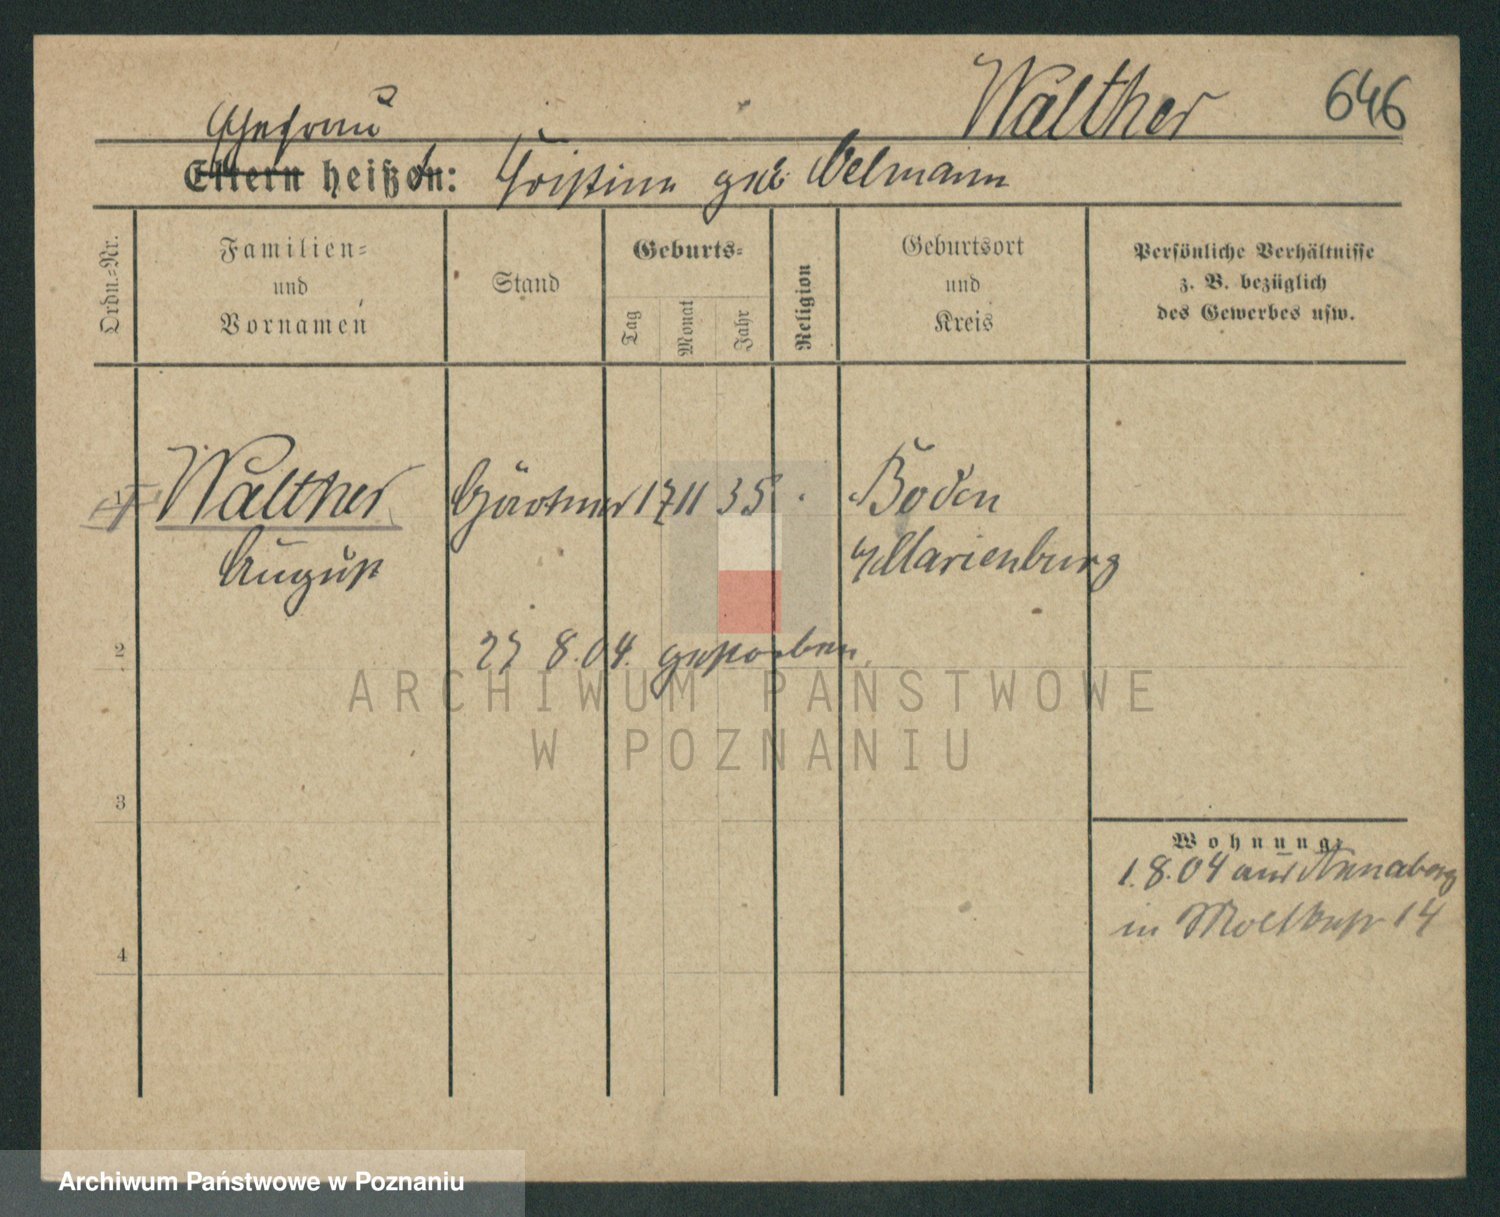 Walther 646
Ehefrau
Eltern heißen: Christine geb Velmann
Ordn.-Nr.
Familien-
und
Vornamen
Stand
Geburts-
Tag
Monat
Jahr
Religion
Geburtsort
und
Kreis
Persönliche Verhältnisse
z. B. bezüglich
des Gewerbes usw.
1 Walther Gärtner 17 11 35 Boden
August Marienburg
2
8.04. gestorben
ARCHIWUM PAŃSTWOWE
W POZNANIU
3
Wohnung:
1.8.04 aus Annaberg
in Moltkestr 14
4
Archiwum Państwowe w Poznaniu